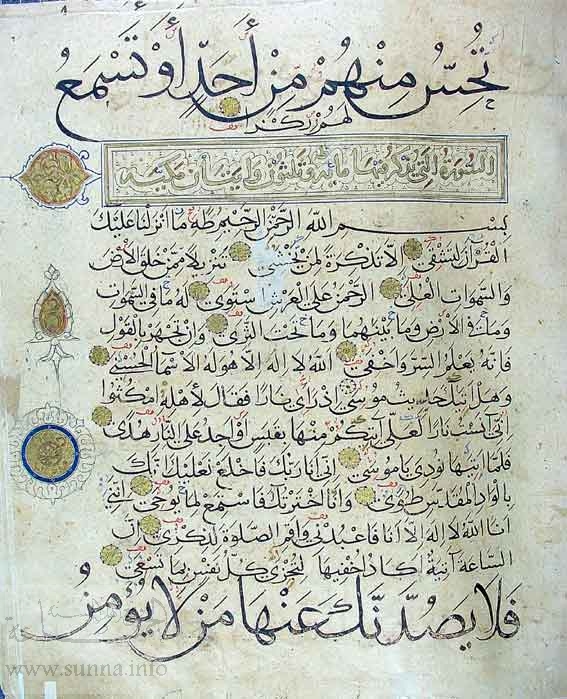 تُحِسُّ مِنْهُمْ مِنْ أَحَدٍ أَوْ تَسْمَعُ
لهم ركزا
السورة التي يذكر فيها طه مائه وثلثون وايتان مكية
بسم الله الرحمن الرحيم طه ما انزلنا عليك
القرآن لتشقى الا تذكرة لمن يخشى تنزيلا ممن خلق الارض
والسموات العلى الرحمن على العرش استوى له ما في السموات
وما في الارض وما بينهما وما تحت الثرى وان تجهر بالقول
فانه يعلم السر واخفى الله لا اله الا هو له الاسماء الحسنى
وهل اتيك حديث موسى اذ راى نارا فقال لاهله امكثوا
اني آنست نارا لعلي آتيكم منها بقبس او اجد على النار هدى
فلما اتيها نودي يا موسى اني انا ربك فاخلع نعليك انك
بالواد المقدس طوى وانا اخترتك فاستمع لما يوحى انني
انا الله لا اله الا انا فاعبدني واقم الصلوة لذكري ان
الساعة آتية اكاد اخفيها لتجزى كل نفس بما تسعى
فَلا يَصُدَّنَّكَ عَنْهَا مَنْ لا يُؤْمِنُ
www.sunna.info